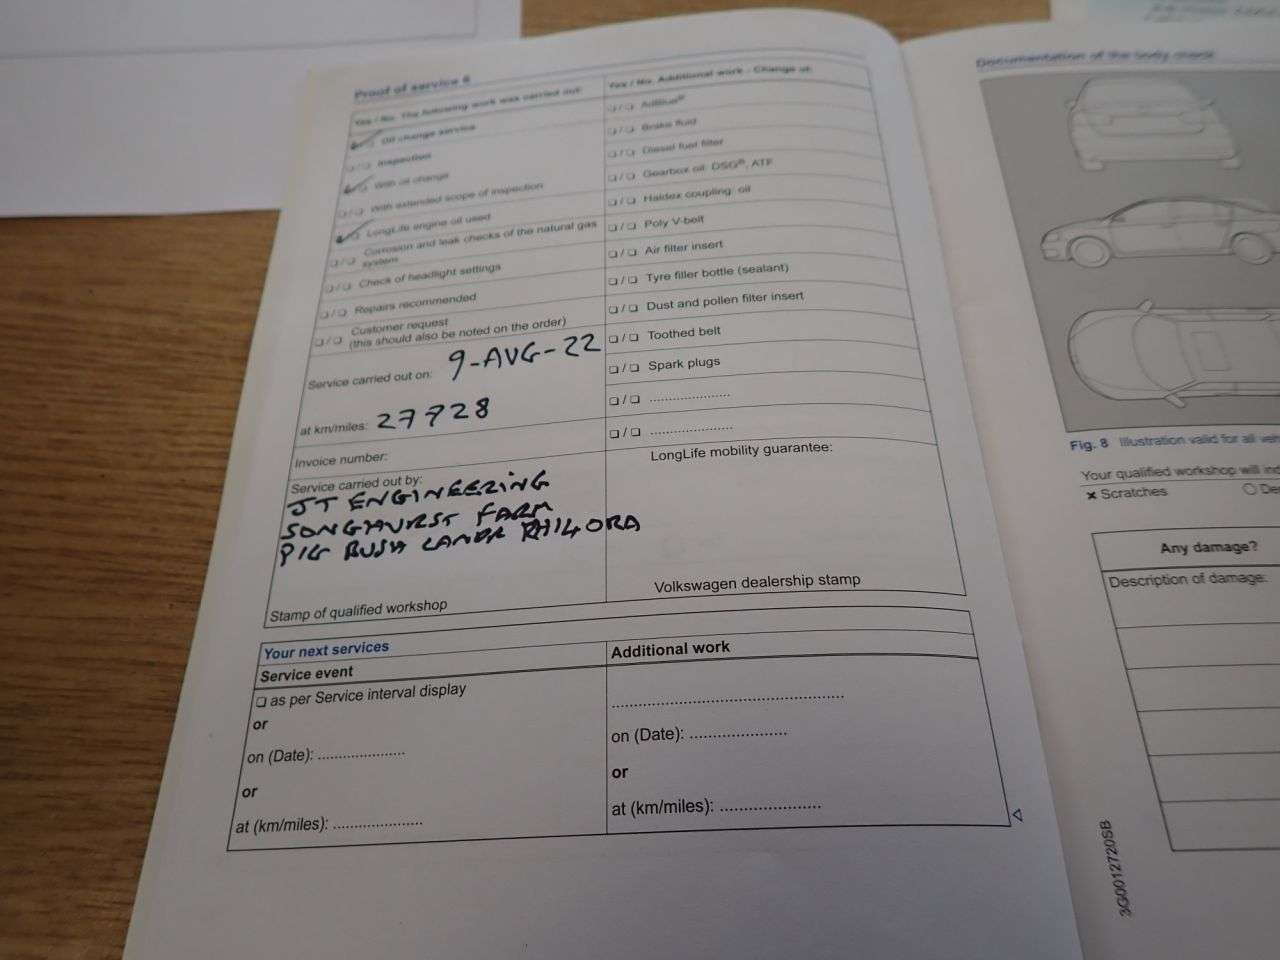 Proof of service 6
Yes / No. The following work was carried out:
Oil change service
❏/❏ Inspection
With oil change
❏/❏ With extended scope of inspection
LongLife engine oil used
❏/❏ Corrosion and leak checks of the natural gas
system
❏/❏ Check of headlight settings
❏/❏ Repairs recommended
❏/❏ Customer request
(this should also be noted on the order)
Service carried out on: 9-AUG-22
at km/miles: 27728
Invoice number:
Service carried out by:
JT ENGINEERING
SONGHURST FARM
PIG BUSH
Stamp of qualified workshop
Yes / No. Additional work - Change of:
❏/❏ AdBlue®
❏/❏ Brake fluid
❏/❏ Diesel fuel filter
❏/❏ Gearbox oil: DSG®, ATF
❏/❏ Haldex coupling: oil
❏/❏ Poly V-belt
❏/❏ Air filter insert
❏/❏ Tyre filler bottle (sealant)
❏/❏ Dust and pollen filter insert
❏/❏ Toothed belt
❏/❏ Spark plugs
❏/❏ .....................
❏/❏ .....................
LongLife mobility guarantee:
Volkswagen dealership stamp
Your next services
Service event
❏ as per Service interval display
or
on (Date): .....................
or
at (km/miles): .....................
Additional work
.....................................................
on (Date): .....................
or
at (km/miles): .....................
Documentation of the body check
Fig. 8 Illustration valid for all
Your qualified workshop will
× Scratches
Any damage?
Description of damage:
3G0012720SB